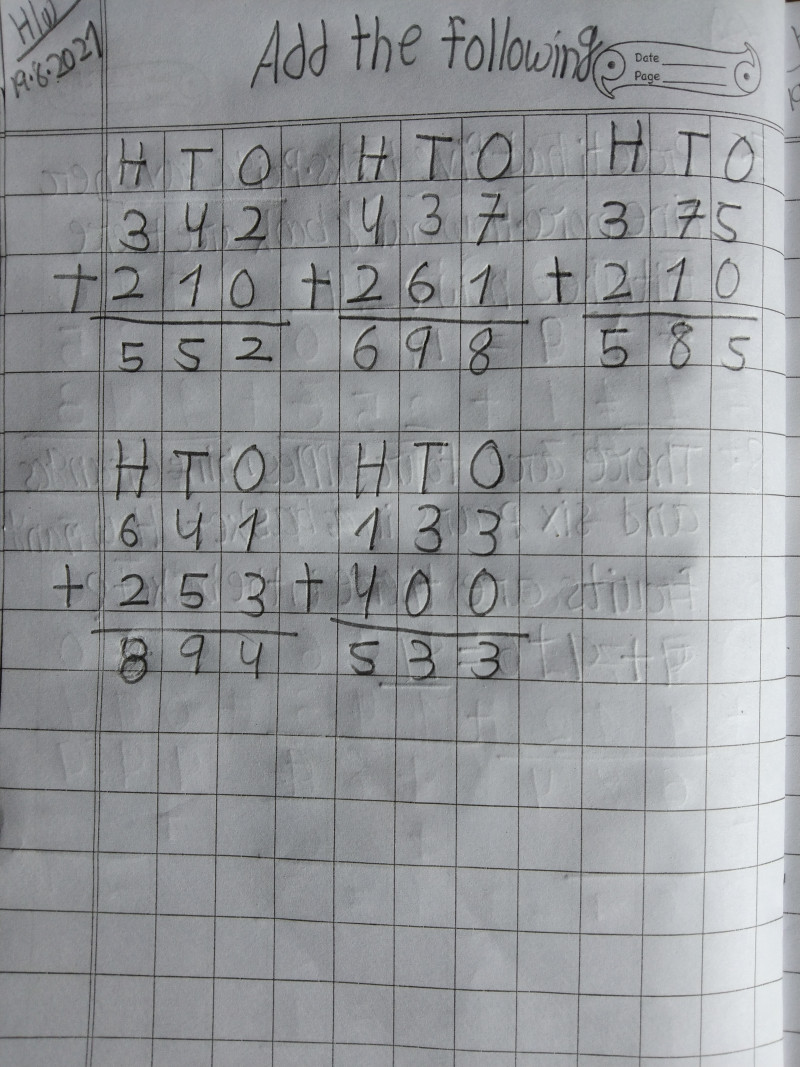 H/W
19.8.2021
Add the following
Date
Page
H T O H T O H T O
3 4 2 4 3 7 3 7 5
+ 2 1 0 + 2 6 1 + 2 1 0
5 5 2 6 9 8 5 8 5
H T O H T O
6 4 1 1 3 3
+ 2 5 3 + 4 0 0
8 9 4 5 3 3